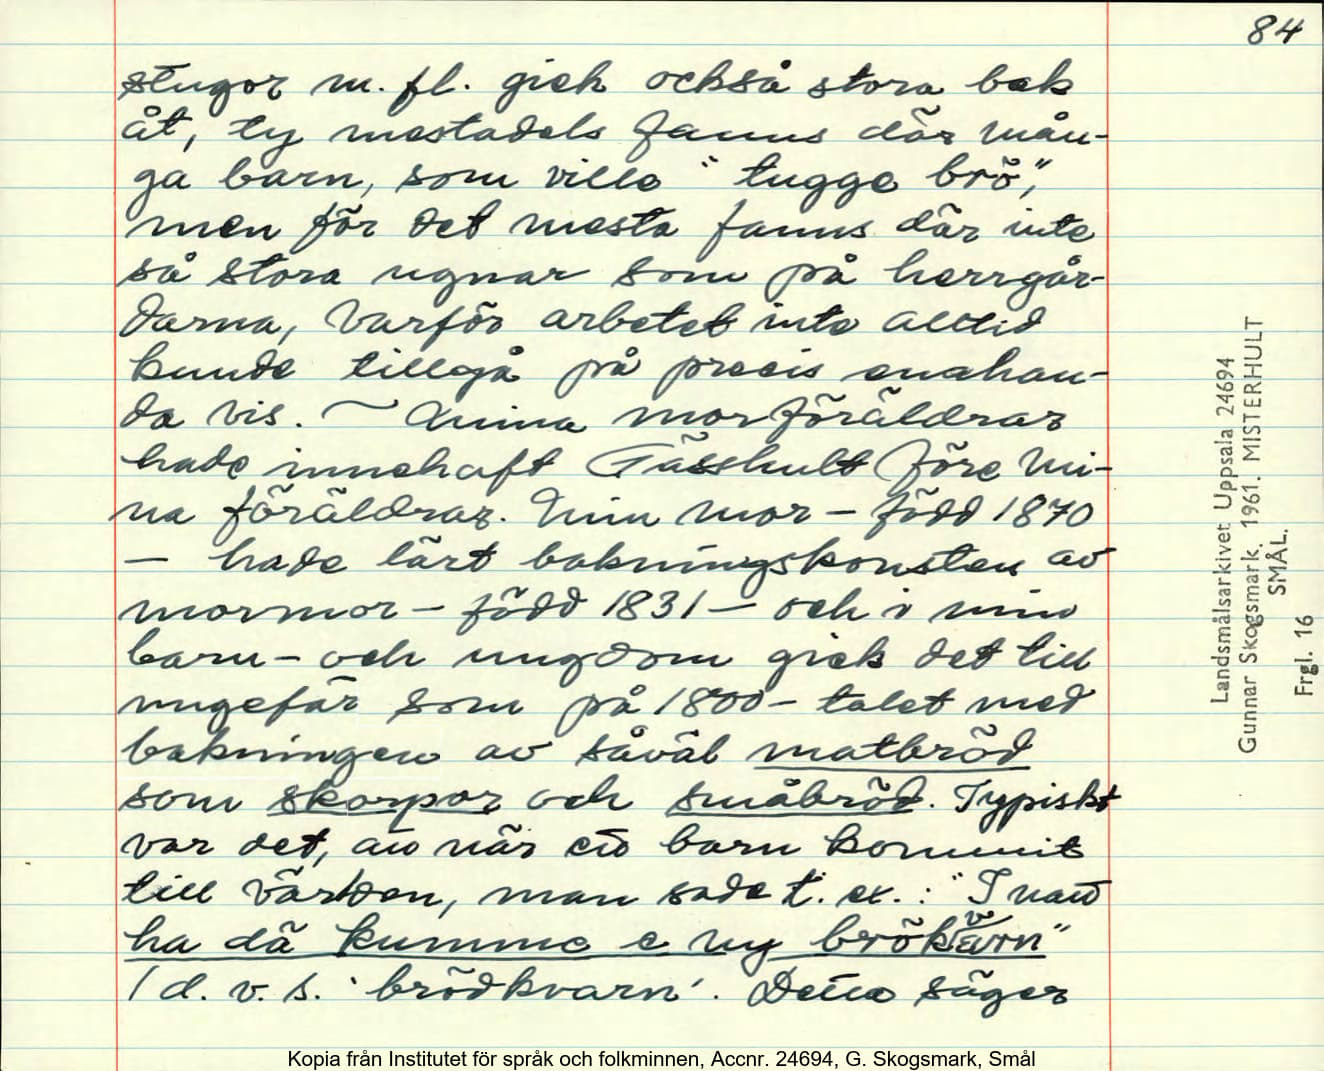 84
stugor m. fl. gick också stora bak
åt, ty mestadels fanns där mån-
ga barn, som ville "tugge brö",
men för det mesta fanns där inte
så stora ugnar som på herrgår-
darna, varför arbetet inte alltid
kunde tillgå på precis enahan-
da vis. ~ Mina morföräldrar
hade innehaft Gässhult före mi-
na föräldrar. Min mor – född 1870
– hade lärt bakningskonsten av
mormor – född 1831 – och i min
barn- och ungdom gick det till
ungefär som på 1800-talet med
bakningen av såväl matbröd
som skorpor och småbröd. Typiskt
var det, att när ett barn kommit
till världen, man sade t. ex.: "I natt
ha dä kumme e ny brökvärn"
(d. v. s. 'brödkvarn'. Detta säger
Landsmålsarkivet Uppsala 24694
Gunnar Skogsmark. 1961. MISTERHULT
SMÅL.
Frgl. 16
Kopia från Institutet för språk och folkminnen, Accnr. 24694, G. Skogsmark, Smål